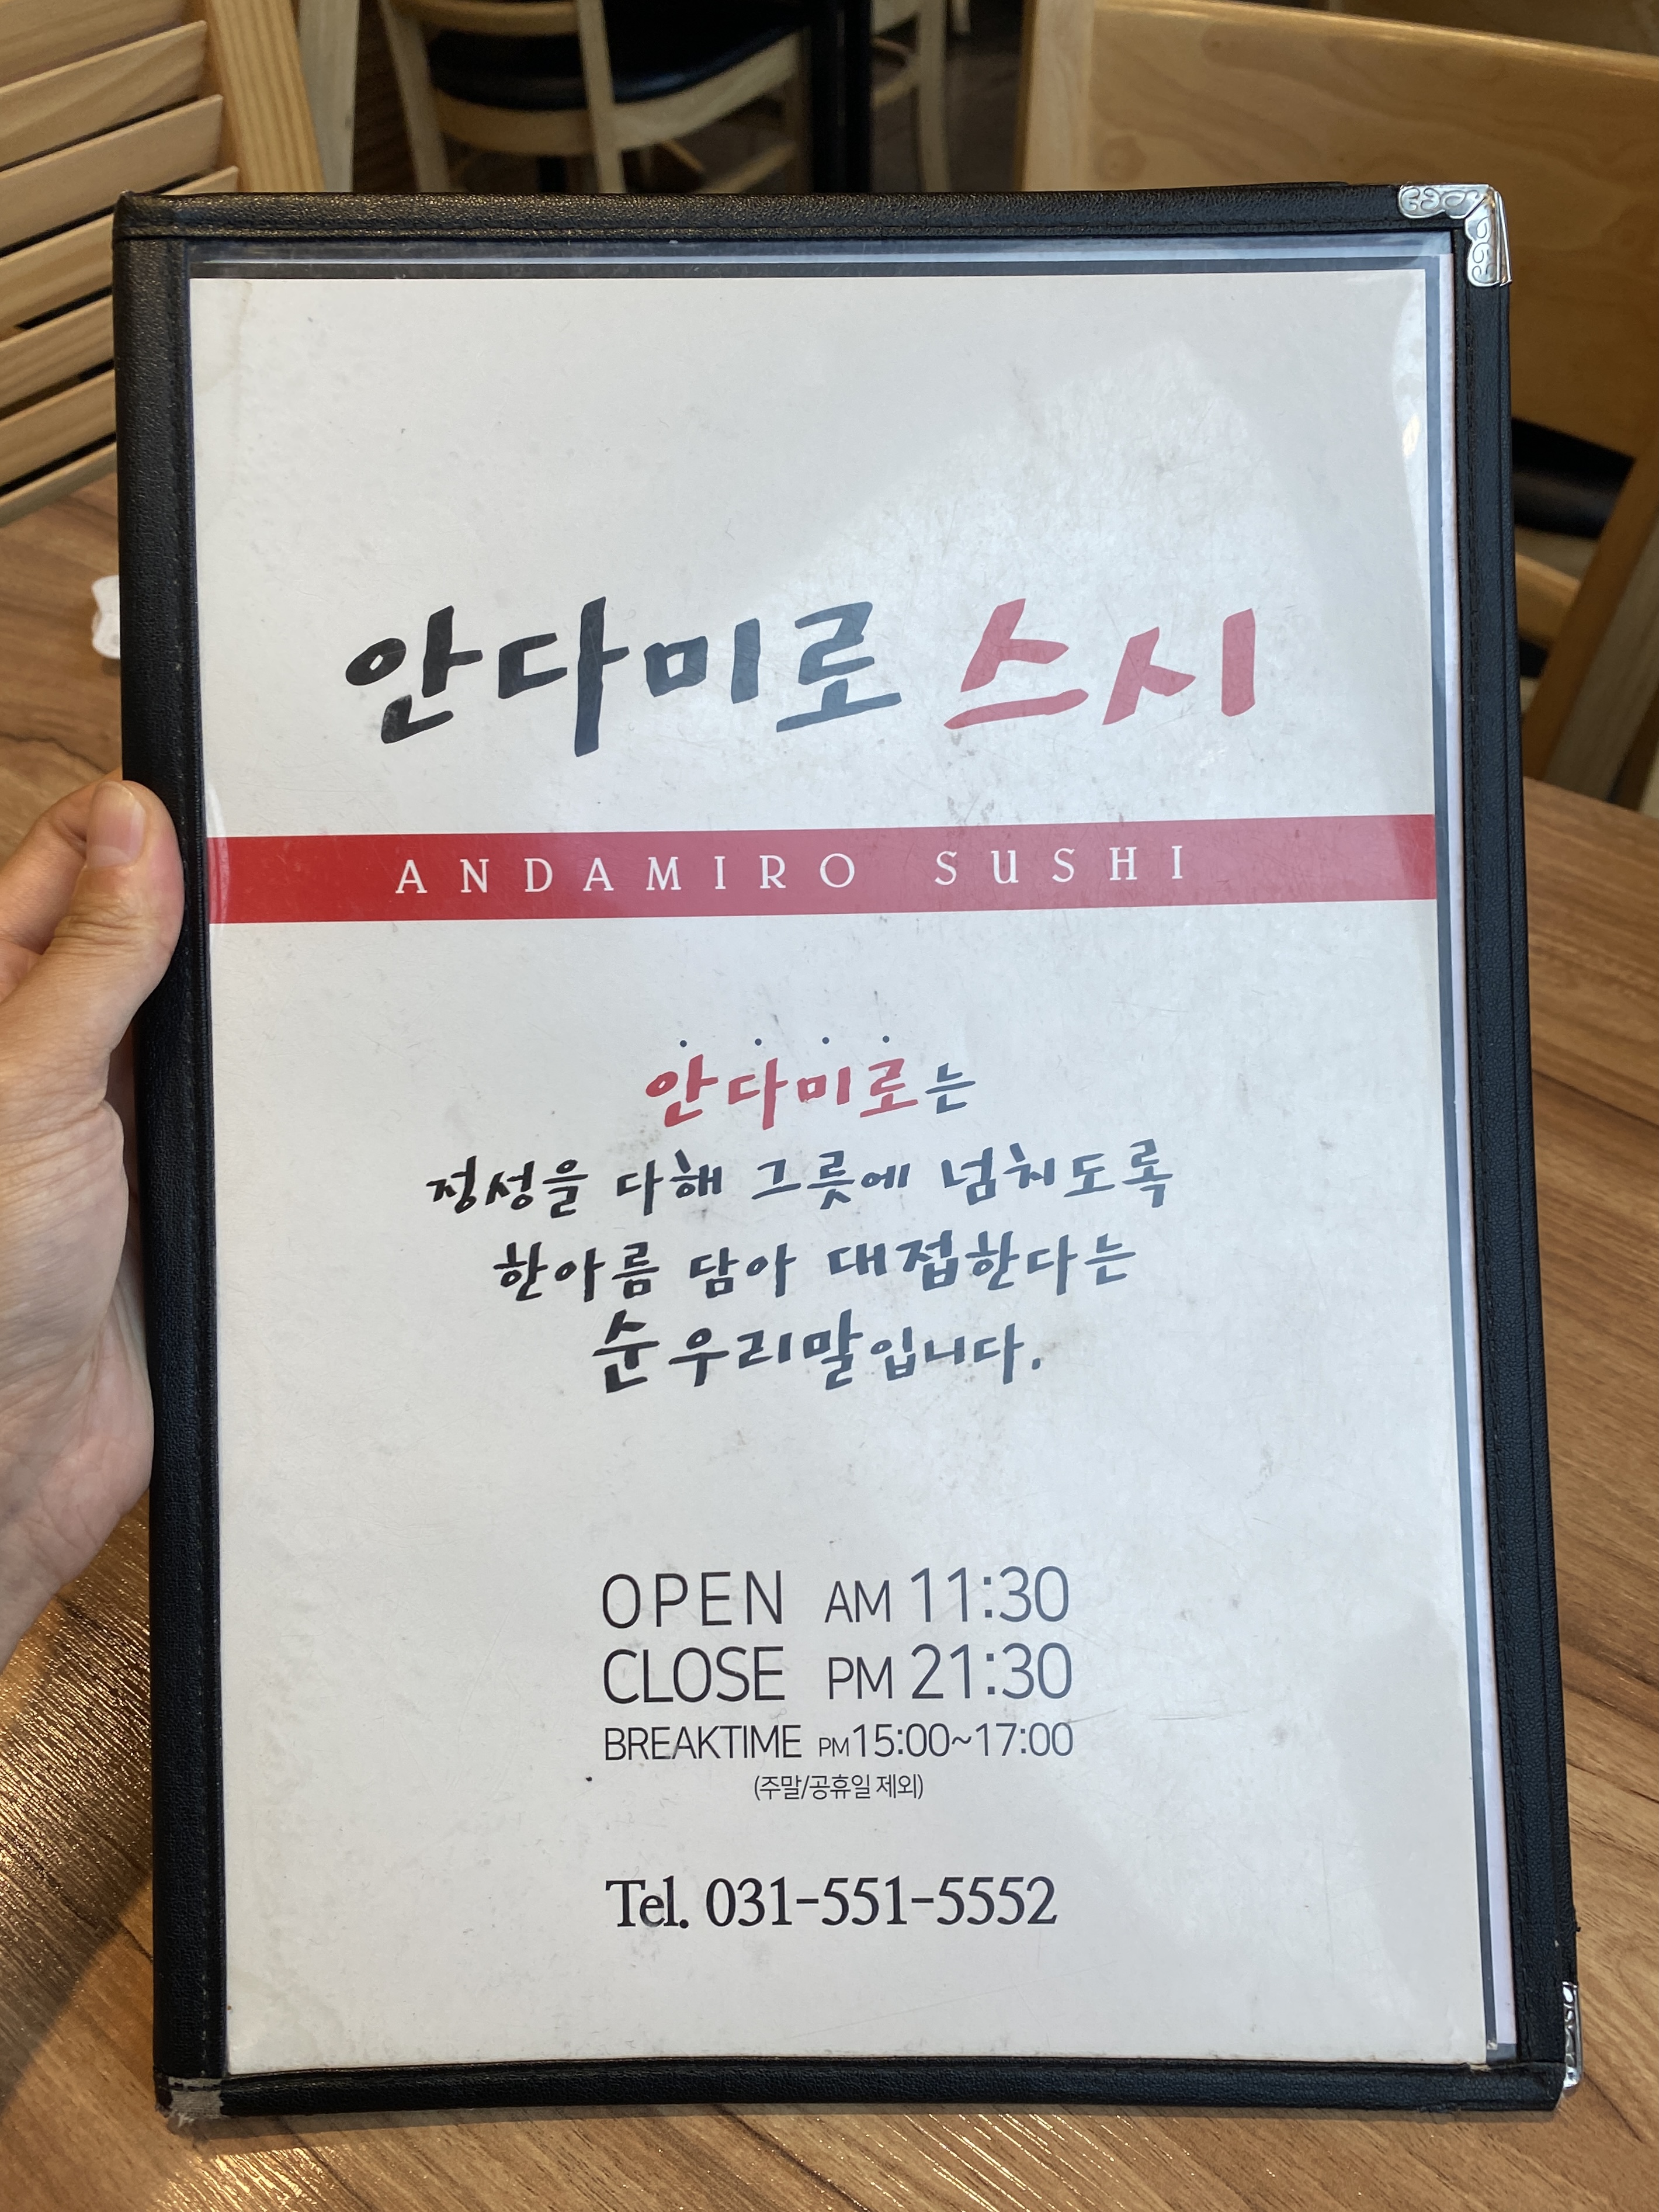 안다미로 스시
ANDAMIRO SUSHI
안다미로는
정성을 다해 그릇에 넘치도록
한아름 담아 대접한다는
순우리말입니다.
OPEN AM 11:30
CLOSE PM 21:30
BREAKTIME PM15:00~17:00
(주말/공휴일 제외)
Tel. 031-551-5552